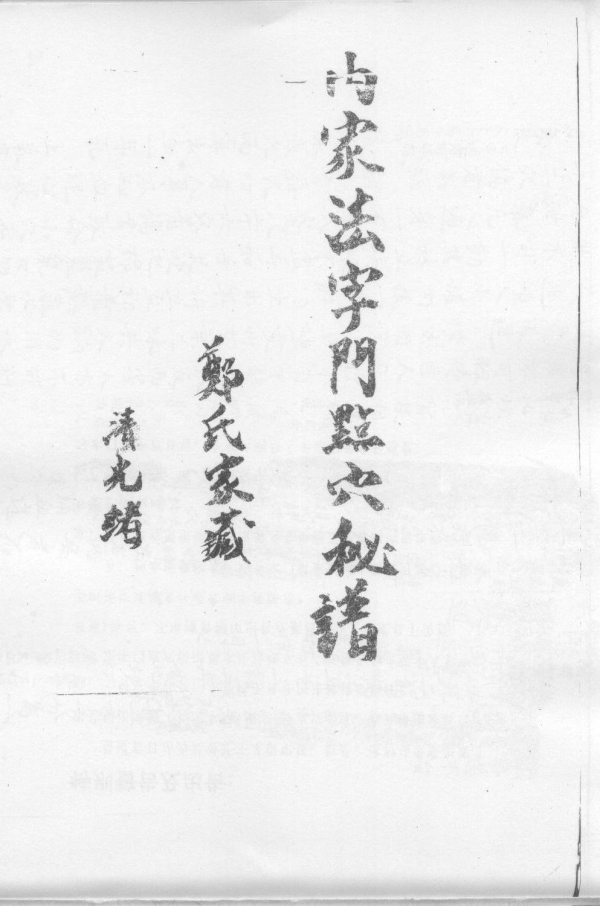 内家法字門點穴秘譜
鄭氏家藏
清光緒